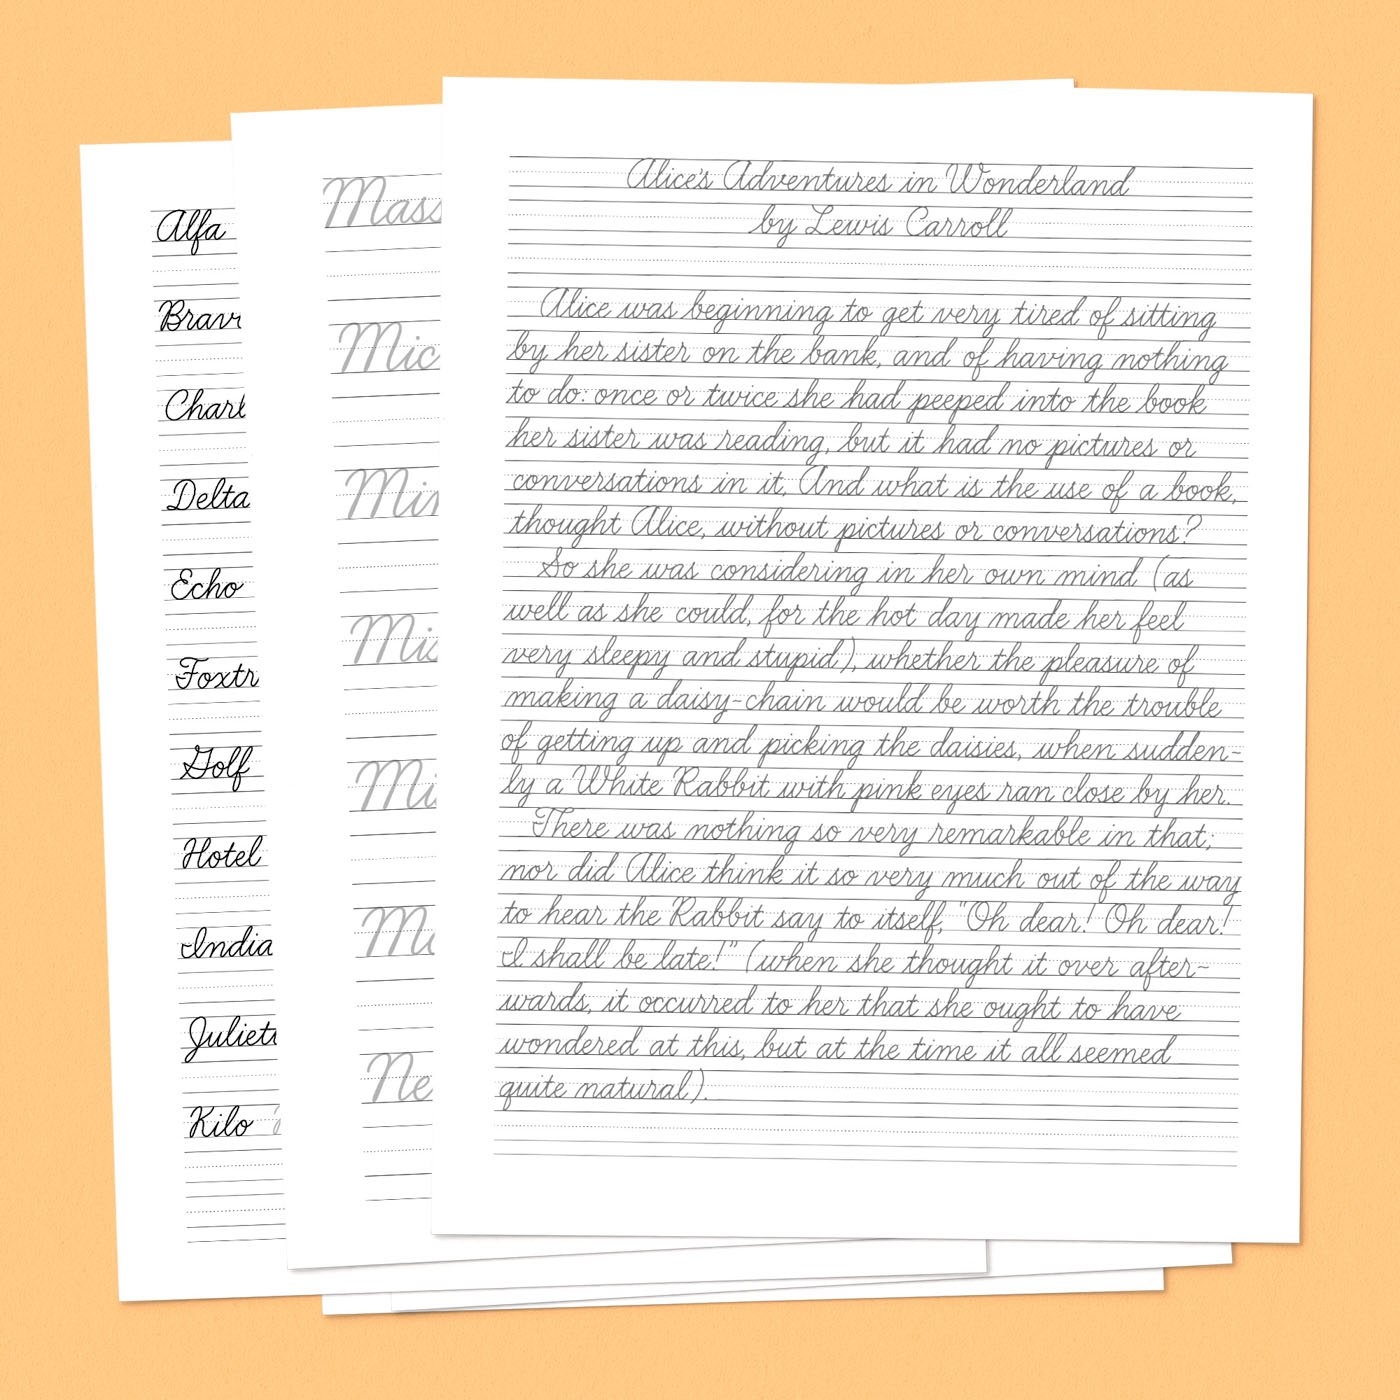 Alfa
Brav
Charl
Delta
Echo
Foxtr
Golf
Hotel
India
Juliet
Kilo
Mass
Mic
Min
Mi
Mi
M
Ne
Alice's Adventures in Wonderland
by Lewis Carroll
Alice was beginning to get very tired of sitting
by her sister on the bank, and of having nothing
to do: once or twice she had peeped into the book
her sister was reading, but it had no pictures or
conversations in it, And what is the use of a book,
thought Alice, without pictures or conversations?
So she was considering in her own mind (as
well as she could, for the hot day made her feel
very sleepy and stupid), whether the pleasure of
making a daisy-chain would be worth the trouble
of getting up and picking the daisies, when sudden-
ly a White Rabbit with pink eyes ran close by her.
There was nothing so very remarkable in that;
nor did Alice think it so very much out of the way
to hear the Rabbit say to itself, "Oh dear! Oh dear!
I shall be late!" (when she thought it over after-
wards, it occurred to her that she ought to have
wondered at this, but at the time it all seemed
quite natural).